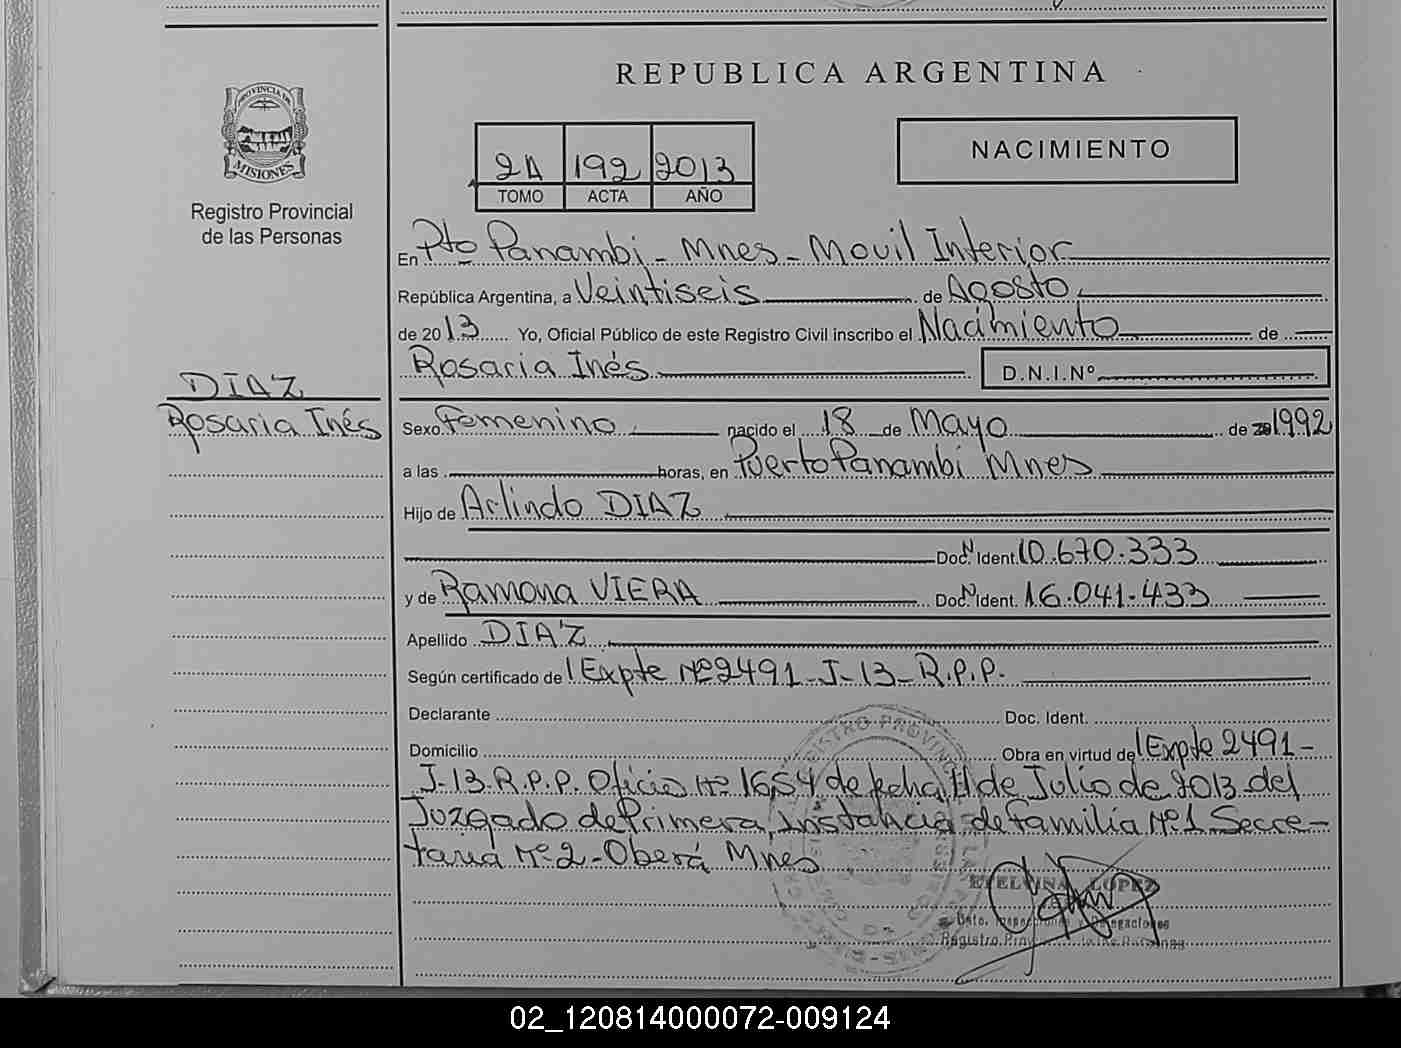 REPUBLICA ARGENTINA
PROVINCIA DE
MISIONES
Registro Provincial
de las Personas
2A 192 2013
TOMO ACTA AÑO
NACIMIENTO
En Pto Panambi - Mnes - Movil Interior
República Argentina, a Veintiseis de Agosto
de 2013 Yo, Oficial Público de este Registro Civil inscribo el Nacimiento de
Rosaria Inés D.N.I.Nº
DIAZ
Rosaria Inés
Sexo Femenino nacido el 18 de Mayo de 1992
a las horas, en Puerto Panambi Mnes
Hijo de Arlindo DIAZ
Doc. Ident. 10.670.333
y de Ramona VIERA Doc. Ident. 16.041.433
Apellido DIAZ
Según certificado de Expte Nº 2491-J-13-R.P.P.
Declarante Doc. Ident.
Domicilio Obra en virtud de Expte 2491-
J-13.R.P.P. Oficio Nº 1654 de fecha 11 de Julio de 2013 del
Juzgado de Primera Instancia de familia Nº 1 Secre-
taria Nº 2 - Oberá Mnes
ETELVINA LOPEZ
Dto. Inspecciones y Delegaciones
Registro Prov. de las Personas
02_120814000072-009124